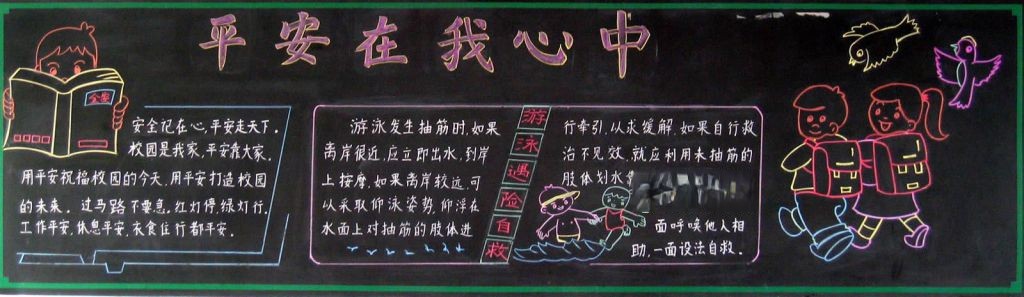 平安在我心中
全安
安全记在心,平安走天下.
校园是我家,平安靠大家.
用平安祝福校园的今天,用平安打造校园
的未来. 过马路 不要急,红灯停,绿灯行.
工作平安,休息平安,衣食住行都平安.
游泳发生抽筋时,如果
离岸很近,应立即出水,到岸
上按摩,如果离岸较远,可
以采取仰泳姿势,仰浮在
水面上对抽筋的肢体进
游泳遇险自救
行牵引,从求缓解,如果自行救
治不见效,就应利用未抽筋的
肢体划水
面呼唤他人相
助,一面设法自救.